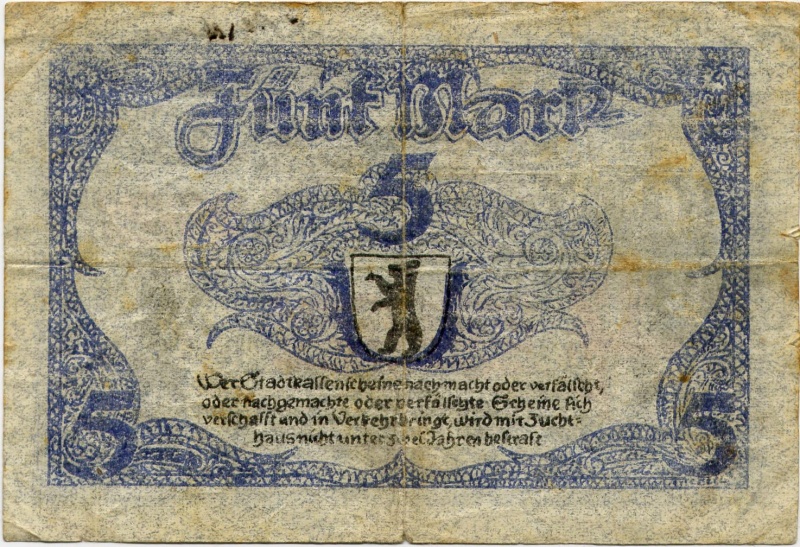 Fünf Mark
5
Wer Stadtkassenscheine nachmacht oder verfälscht,
oder nachgemachte oder verfälschte Scheine sich
verschafft und in Verkehr bringt, wird mit Zucht=
haus nicht unter zwei Jahren bestraft
5
5